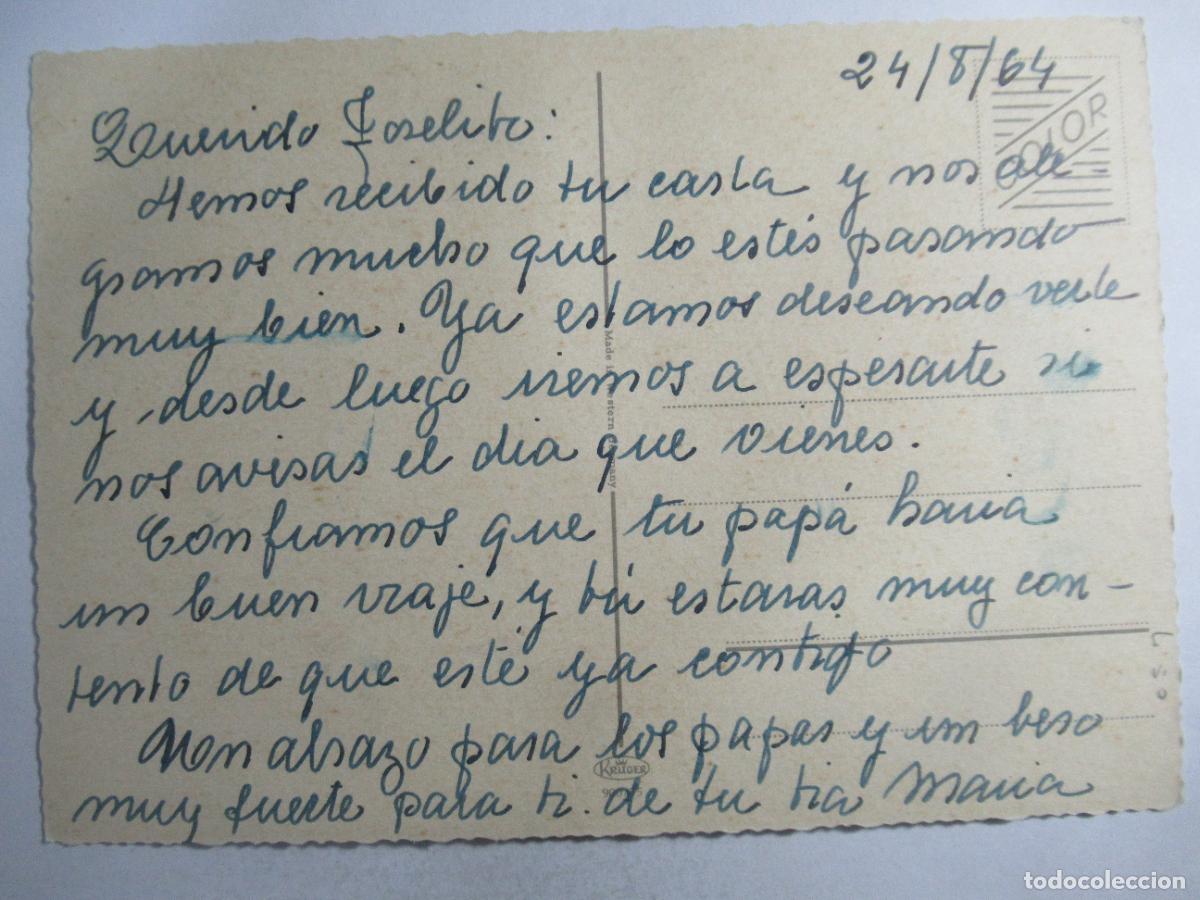 24/8/64
COLOR
Querido Joselito:
Hemos recibido tu carta y nos ale-
gramos mucho que lo estés pasando
muy bien. Ya estamos deseando verte
y desde luego iremos a esperarte si
nos avisas el dia que vienes.
Confiamos que tu papá haria
un buen viaje, y tú estaras muy con-
tento de que esté ya contigo
Un abrazo para los papas y un beso
muy fuerte para ti. de tu tia Maria
Made in Western Germany
KRÜGER
L-50
todocoleccion